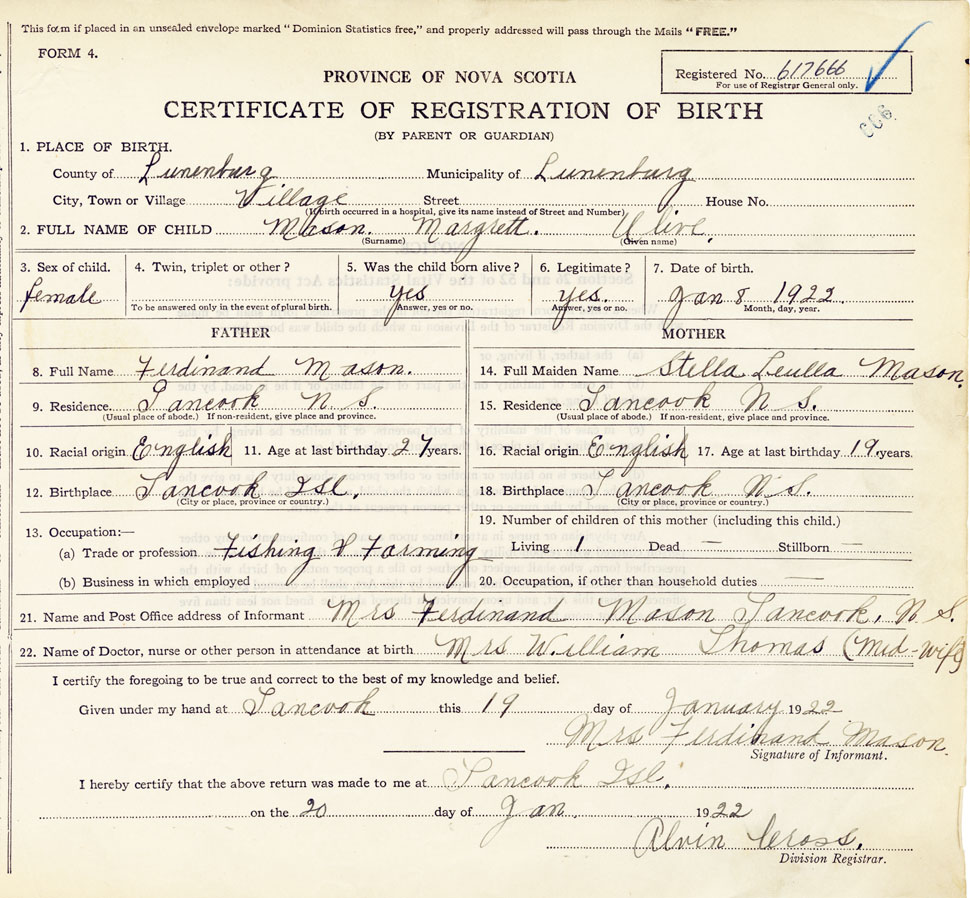 This form if placed in an unsealed envelope marked "Dominion Statistics free," and properly addressed will pass through the Mails "FREE."
FORM 4.
Registered No. 617666
For use of Registrar General only.
006
PROVINCE OF NOVA SCOTIA
CERTIFICATE OF REGISTRATION OF BIRTH
(BY PARENT OR GUARDIAN)
1. PLACE OF BIRTH.
County of Lunenburg Municipality of Lunenburg
City, Town or Village Village Street House No.
(If birth occurred in a hospital, give its name instead of Street and Number)
2. FULL NAME OF CHILD Mason. Margrett. Olive.
(Surname) (Given name)
3. Sex of child. 4. Twin, triplet or other? 5. Was the child born alive? 6. Legitimate? 7. Date of birth.
female yes yes. Jan 8 1922
To be answered only in the event of plural birth. Answer, yes or no. Answer, yes or no. Month, day, year.
FATHER MOTHER
8. Full Name Ferdinand Mason. 14. Full Maiden Name Stella Leulla Mason.
9. Residence. Tancook N S. 15. Residence Tancook N S.
(Usual place of abode.) If non-resident, give place and province. (Usual place of abode.) If non-resident, give place and province.
10. Racial origin English 11. Age at last birthday 27 years. 16. Racial origin English 17. Age at last birthday 19. years.
12. Birthplace Tancook Isl. 18. Birthplace Tancook N.S.
(City or place, province or country.) (City or place, province or country.)
13. Occupation:— 19. Number of children of this mother (including this child.)
(a) Trade or profession Fishing & Farming Living 1 Dead — Stillborn —
(b) Business in which employed 20. Occupation, if other than household duties —
21. Name and Post Office address of Informant Mrs Ferdinand Mason Tancook, N.S.
22. Name of Doctor, nurse or other person in attendance at birth Mrs William Thomas (Mid-Wife)
I certify the foregoing to be true and correct to the best of my knowledge and belief.
Given under my hand at Tancook this 19 day of January 1922
Mrs Ferdinand Mason.
Signature of Informant.
I hereby certify that the above return was made to me at Tancook Isl.
on the 20 day of Jan. 1922
Alvin Cross.
Division Registrar.